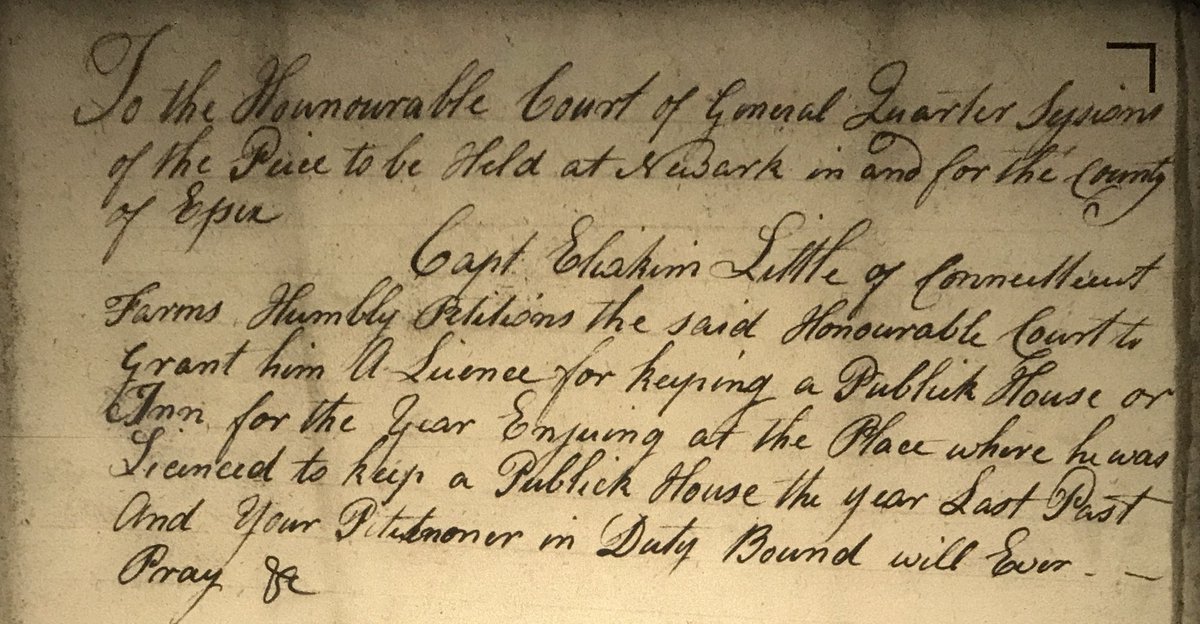 To the Hounourable Court of General Quarter Sessions
of the Peice to be Held at NeWark in and for the County
of Essex
Capt Eliakim Little of Connecticut
Farms Humbly Petitions the said Honourable Court to
Grant him A Licence for keeping a Publick House or
Inn for the Year Ensuing at the Place where he was
Licenced to keep a Publick House the year Last Past
And Your Petetnoner in Duty Bound will Ever - —
Pray &c